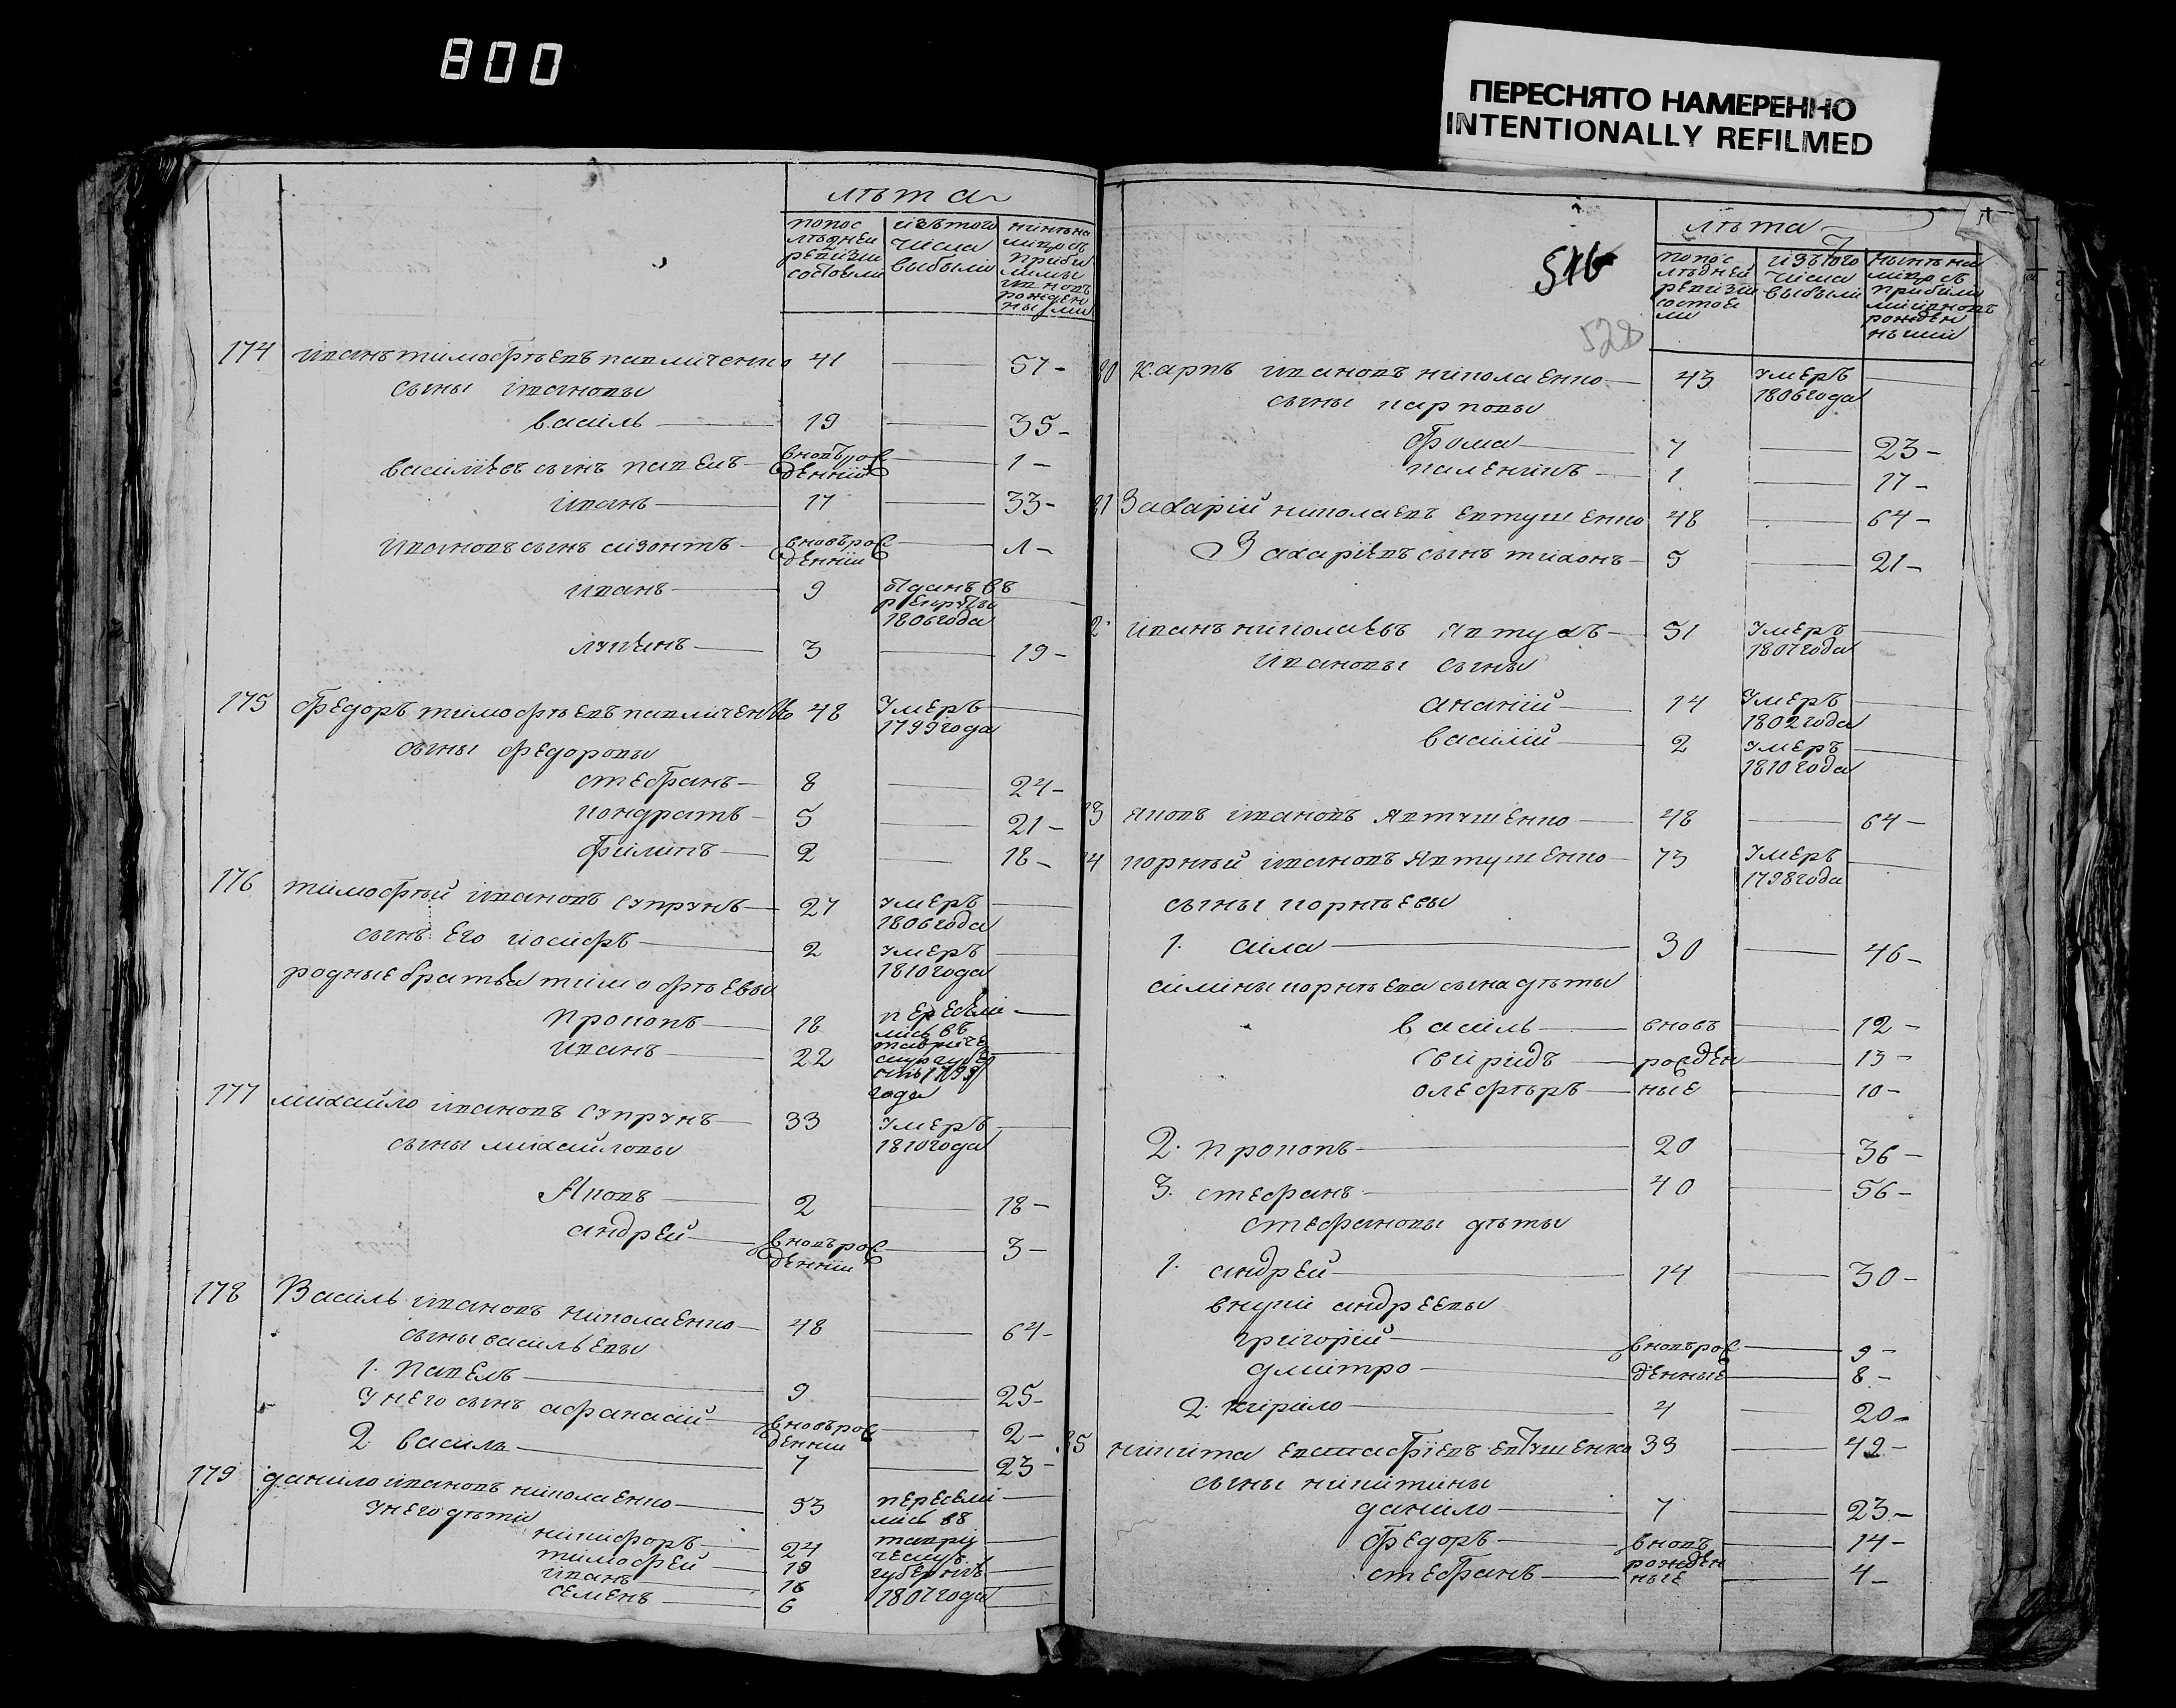 800
ПЕРЕСНЯТО НАМЕРЕННО
INTENTIONALLY REFILMED
лѣта
попос лѣдней ревизіи состояли
изътого числа выбыли
174 иванъ тимофѣевъ павличенко 41 57
сыны ивановы
василь 19 35
василиевъ сынъ павелъ вновърожденній 1
иванъ 17 33
ивановъ сынъ сизонтъ вновърожденній
иванъ 9 1806 года
лукянъ 3 19
175 федоръ тимофѣевъ павличенко 48 умеръ 1799 года
сыны федоровы
стефанъ 8 24
кондратъ 5 21
филипъ 2 18
176 тимофѣй ивановъ супрунъ 27 умеръ 1806 года
сынъ его иосифъ 2 умеръ 1810 года
родные братья тимофѣевы
прокопъ 18
иванъ 22
177 михайло ивановъ супрунъ 33 умеръ 1810 года
сыны михайловы
яковъ 2 18
андрей вновърожденній 3
178 Василь ивановъ николаенко 48 64
сыны васильевы
1. павелъ 9 25
унего сынъ афанасій вновърожденній 2
2. василь 7 23
179 данило ивановъ николаенко 53 переселились въ таврическую губернію 1807 года
унего дѣти
никифоръ 24
тимофей 19
иванъ 16
семенъ 6
лѣта
528
попос лѣдней ревизіи состояли
изътого числа выбыли
карпъ ивановъ николаенко 43 умеръ 1806 года
сыны карповы
фома 7 23
1 17
Захарій николаевъ евтушенко 48 64
Захаріевъ сынъ тихонъ 5 21
иванъ николаевъ явтухъ 51 умеръ 1807 года
ивановы сыны
ананій 14 умеръ 1802 года
василій 2 умеръ 1810 года
яковъ ивановъ явтушенко 48 64
корнѣй ивановъ явтушенко 73 умеръ 1798 года
сыны корнѣевы
1. сила 30 46
силины корнѣева сына дѣты
василь вновь 12
свиридъ рожден 13
олефѣръ ные 10
2. прокопъ 20 36
3. стефанъ 40 56
стефановы дѣты
1. андрей 14 30
внуки андреевы
григорій вновърож 9
дмитро денные 8
2. кирило 4 20
никита евстафіевъ евтушенко 33 49
сыны никитины
данило 7 23
федоръ вновь 14
стефанъ рожденные 4